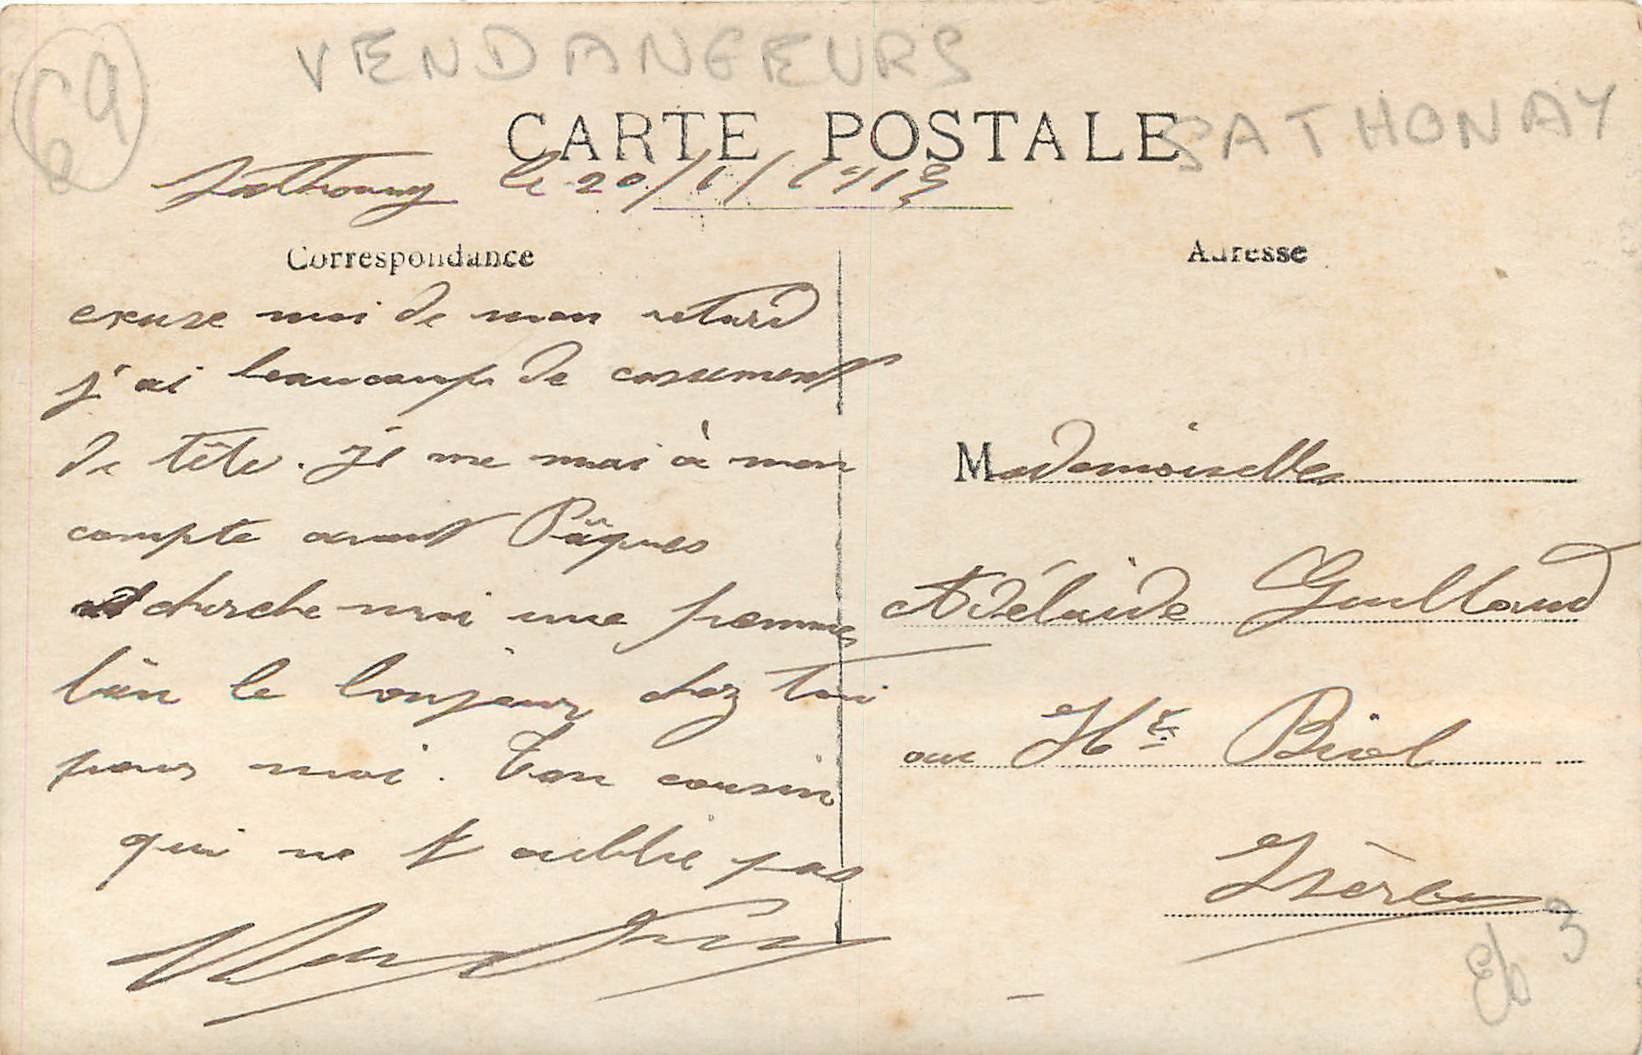 69
VENDANGEURS
SATHONAY
CARTE POSTALE
Sathonay le 20/1/1913
Correspondance
Adresse
excuse moi de mon retard
j'ai beaucoup de cassement
de tête. je me mai à mon
compte avant Pâques
cherche moi une femme
bien le bonjour chez toi
pour moi. Ton cousin
qui ne t'oublie pas
Mademoiselle
Adélaïde Guillaud
au Ht Biol
Isère
3